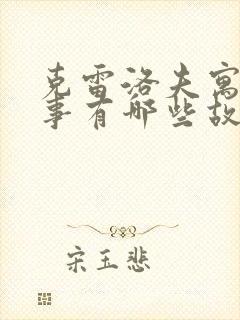 克雷洛夫寓
事有哪些故
宋玉悲